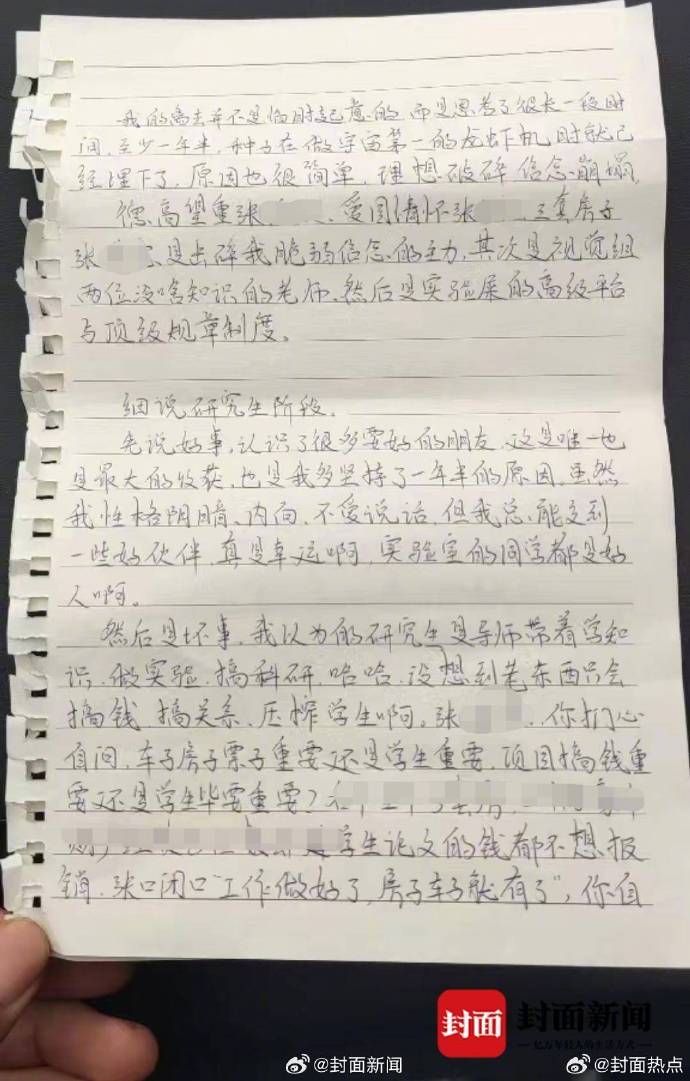 我的离去并不是临时起意的,而是思考了很长一段时
间,至少一年半,种子在做宇宙第一的龙虾机时就已
经埋下了,原因也很简单,理想破碎,信念崩塌,
德高望重张 、爱国情怀张 、三套房子
张 是击碎我脆弱信念的主力,其次是视觉组
两位没啥知识的老师,然后是实验屎的高级平台
与顶级规章制度。
细说研究生阶段,
先说好事,认识了很多要好的朋友,这是唯一也
是最大的收获,也是我多坚持了一年半的原因,虽然
我性格阴暗、内向、不爱说话,但我总能交到
一些好伙伴,真是幸运啊,实验室的同学都是好
人啊。
然后是坏事,我以为的研究生是导师带着学知
识、做实验、搞科研,哈哈,没想到老东西只会
搞钱、搞关系、压榨学生啊。张 ,你扪心
自问,车子房子票子重要还是学生重要,项目搞钱重
要还是学生毕要重要?
学生论文的钱都不想报
销,张口闭口“工作做好了,房子车子就有了”,你自
封面 封面新闻
亿万年轻人的生活方式
@封面新闻 @封面热点